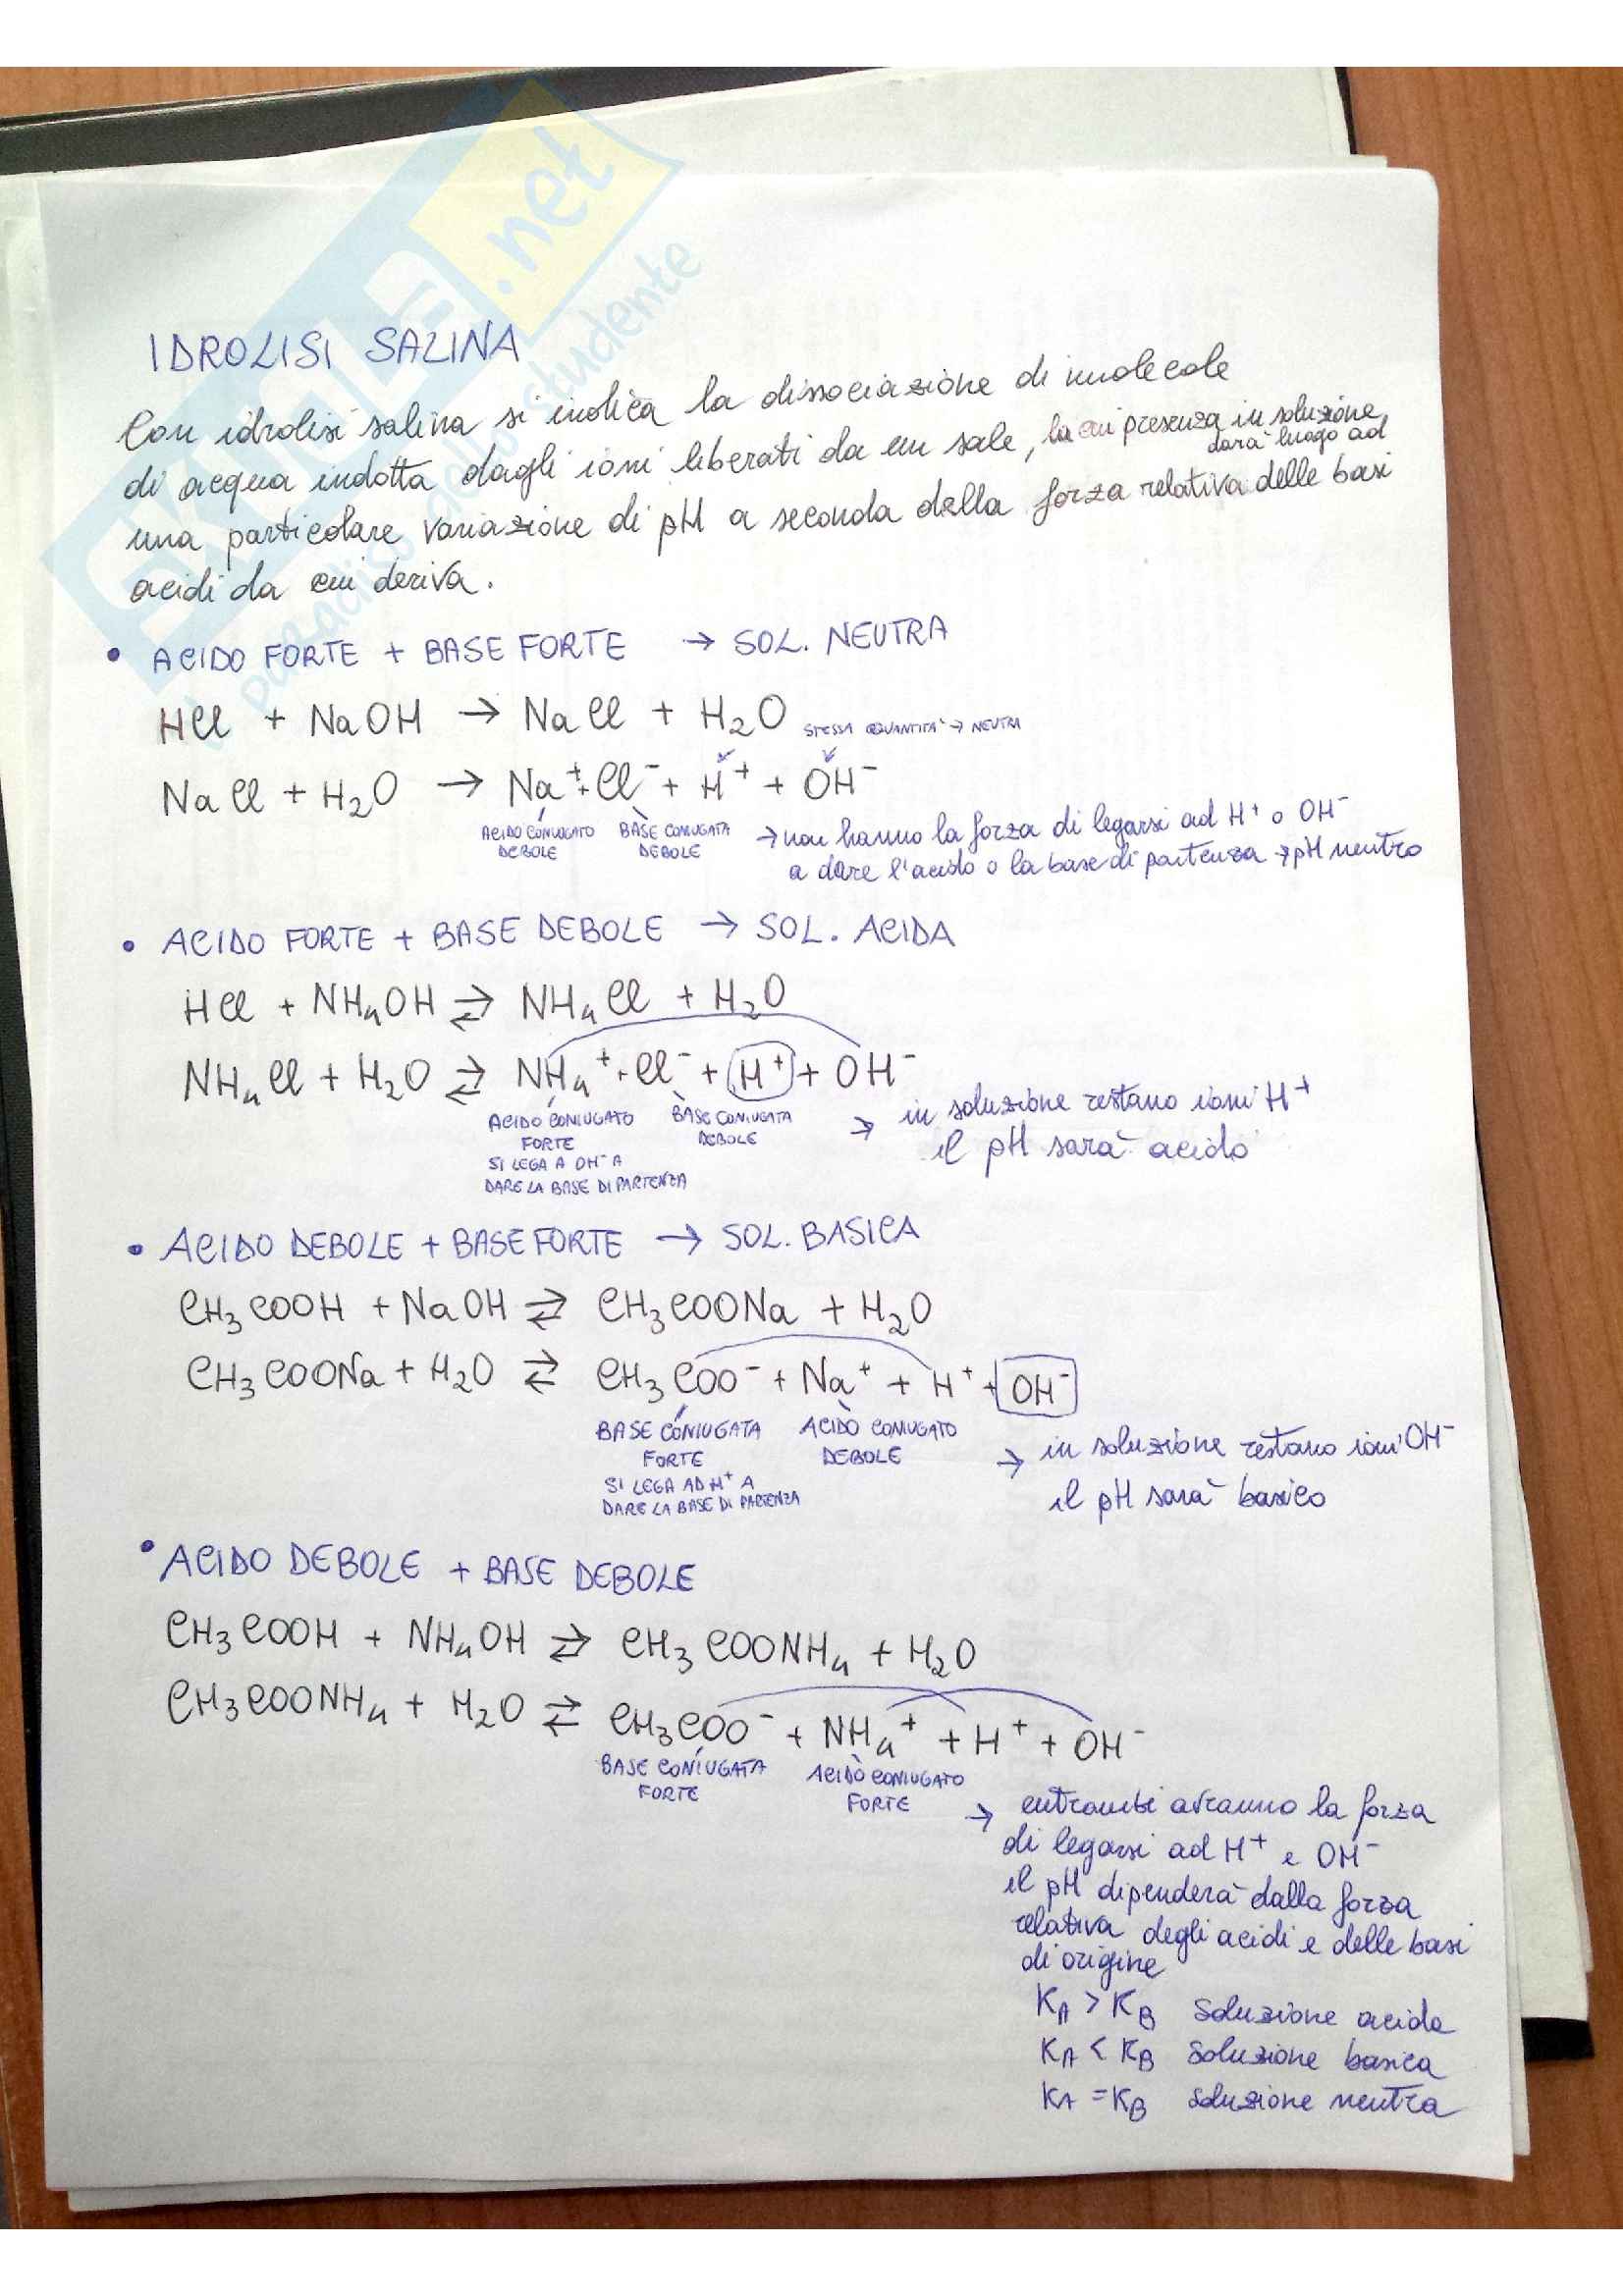 SKUOLA.net
il paradiso dello studente
IDROLISI SALINA
Con idrolisi salina si indica la dissociazione di molecole
di acqua indotta dagli ioni liberati da un sale, la cui presenza in soluzione
darà luogo ad
una particolare variazione di pH a seconda della forza relativa delle basi
acidi da cui deriva.
• ACIDO FORTE + BASE FORTE → SOL. NEUTRA
HCl + NaOH → NaCl + H₂O STESSA QUANTITA' → NEUTRA
NaCl + H₂O → Na⁺ + Cl⁻ + H⁺ + OH⁻
ACIDO CONIUGATO DEBOLE BASE CONIUGATA DEBOLE → non hanno la forza di legarsi ad H⁺ o OH⁻
a dare l'acido o la base di partenza → pH neutro
• ACIDO FORTE + BASE DEBOLE → SOL. ACIDA
HCl + NH₄OH ⇄ NH₄Cl + H₂O
NH₄Cl + H₂O ⇄ NH₄⁺ + Cl⁻ + H⁺ + OH⁻
ACIDO CONIUGATO FORTE SI LEGA A OH⁻ A DARE LA BASE DI PARTENZA
BASE CONIUGATA DEBOLE
→ in soluzione restano ioni H⁺
il pH sarà acido
• ACIDO DEBOLE + BASE FORTE → SOL. BASICA
CH₃COOH + NaOH ⇄ CH₃COONa + H₂O
CH₃COONa + H₂O ⇄ CH₃COO⁻ + Na⁺ + H⁺ + OH⁻
BASE CONIUGATA FORTE SI LEGA AD H⁺ A DARE LA BASE DI PARTENZA
ACIDO CONIUGATO DEBOLE
→ in soluzione restano ioni OH⁻
il pH sarà basico
• ACIDO DEBOLE + BASE DEBOLE
CH₃COOH + NH₄OH ⇄ CH₃COONH₄ + H₂O
CH₃COONH₄ + H₂O ⇄ CH₃COO⁻ + NH₄⁺ + H⁺ + OH⁻
BASE CONIUGATA FORTE
ACIDO CONIUGATO FORTE
→ entrambi avranno la forza
di legarsi ad H⁺ e OH⁻
il pH dipenderà dalla forza
relativa degli acidi e delle basi
di origine
K_A > K_B soluzione acida
K_A < K_B soluzione basica
K_A = K_B soluzione neutra